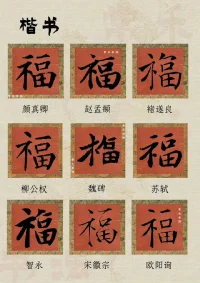 楷书
福 福 福
颜真卿 赵孟頫 褚遂良
福 福 福
柳公权 魏碑 苏轼
福 福 福
智永 宋徽宗 欧阳询